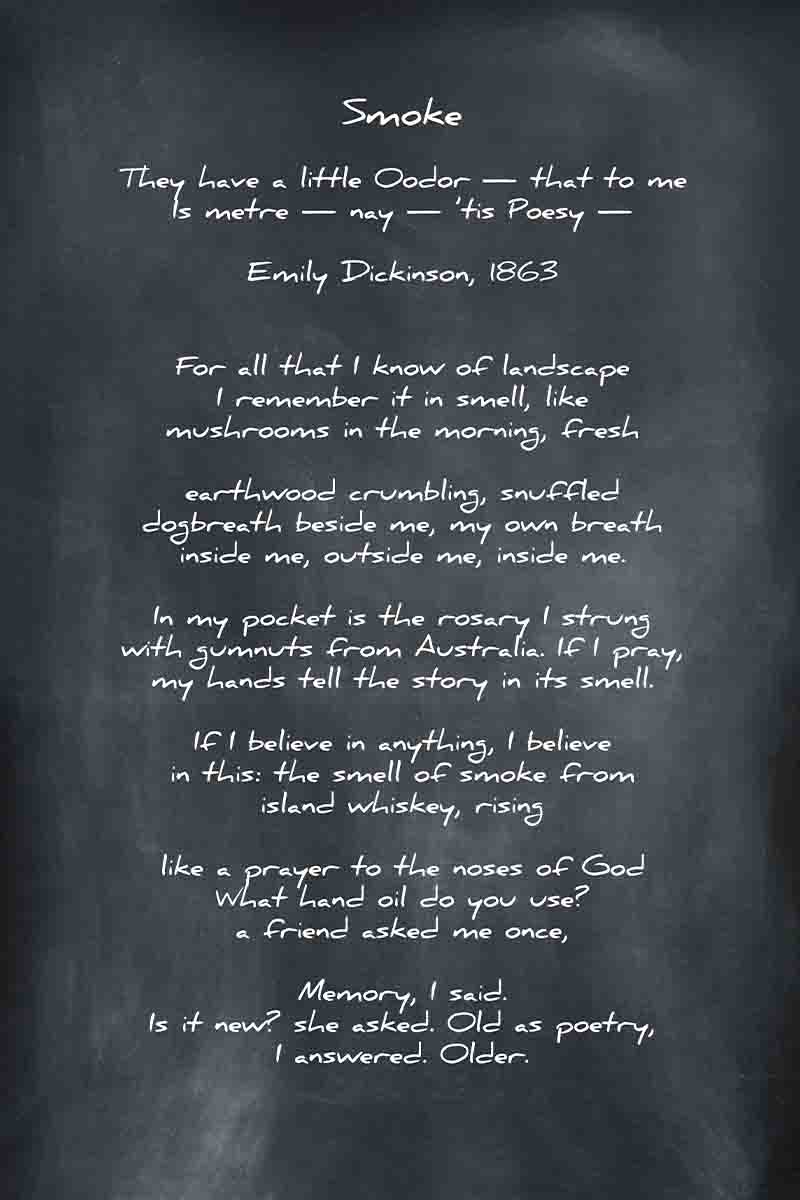 Smoke
They have a little Oodor — that to me
Is metre — nay — 'tis Poesy —
Emily Dickinson, 1863
For all that I know of landscape
I remember it in smell, like
mushrooms in the morning, fresh
earthwood crumbling, snuffled
dogbreath beside me, my own breath
inside me, outside me, inside me.
In my pocket is the rosary I strung
with gumnuts from Australia. If I pray,
my hands tell the story in its smell.
If I believe in anything, I believe
in this: the smell of smoke from
island whiskey, rising
like a prayer to the noses of God
What hand oil do you use?
a friend asked me once,
Memory, I said.
Is it new? she asked. Old as poetry,
I answered. Older.